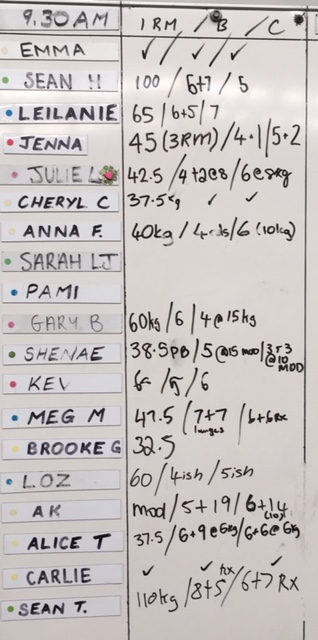 9.30 AM 1RM / B / C
EMMA ✓ / ✓ / ✓
SEAN H 100 / 6+7 / 5
LEILANIE 65 / 6+5 / 7
JENNA 45 (3RM) / 4+1 / 5+2
JULIE L 42.5 / 4+2c8 / 6@8kg
CHERYL C 37.5kg ✓ ✓
ANNA F. 40kg / 4 / 6 (10kg)
SARAH LJ
PAMI
GARY B 60kg / 6 / 4@15kg
SHENAE 38.5PB / 5@15 MOD / 3+3 @10 MOD
KEV / 5 / 6
MEG M 47.5 / 7+7 lunges / 6+6Rx
BROOKE G 32.5
LOZ 60 / 4ish / 5ish
AK mod / 5+19 / 6+14 (10)
ALICE T 37.5 / 6+9@6kg / 6+6@6kg
CARLIE ✓ ✓ ✓
SEAN T. 110kg / 8+5 Rx / 6+7 RX